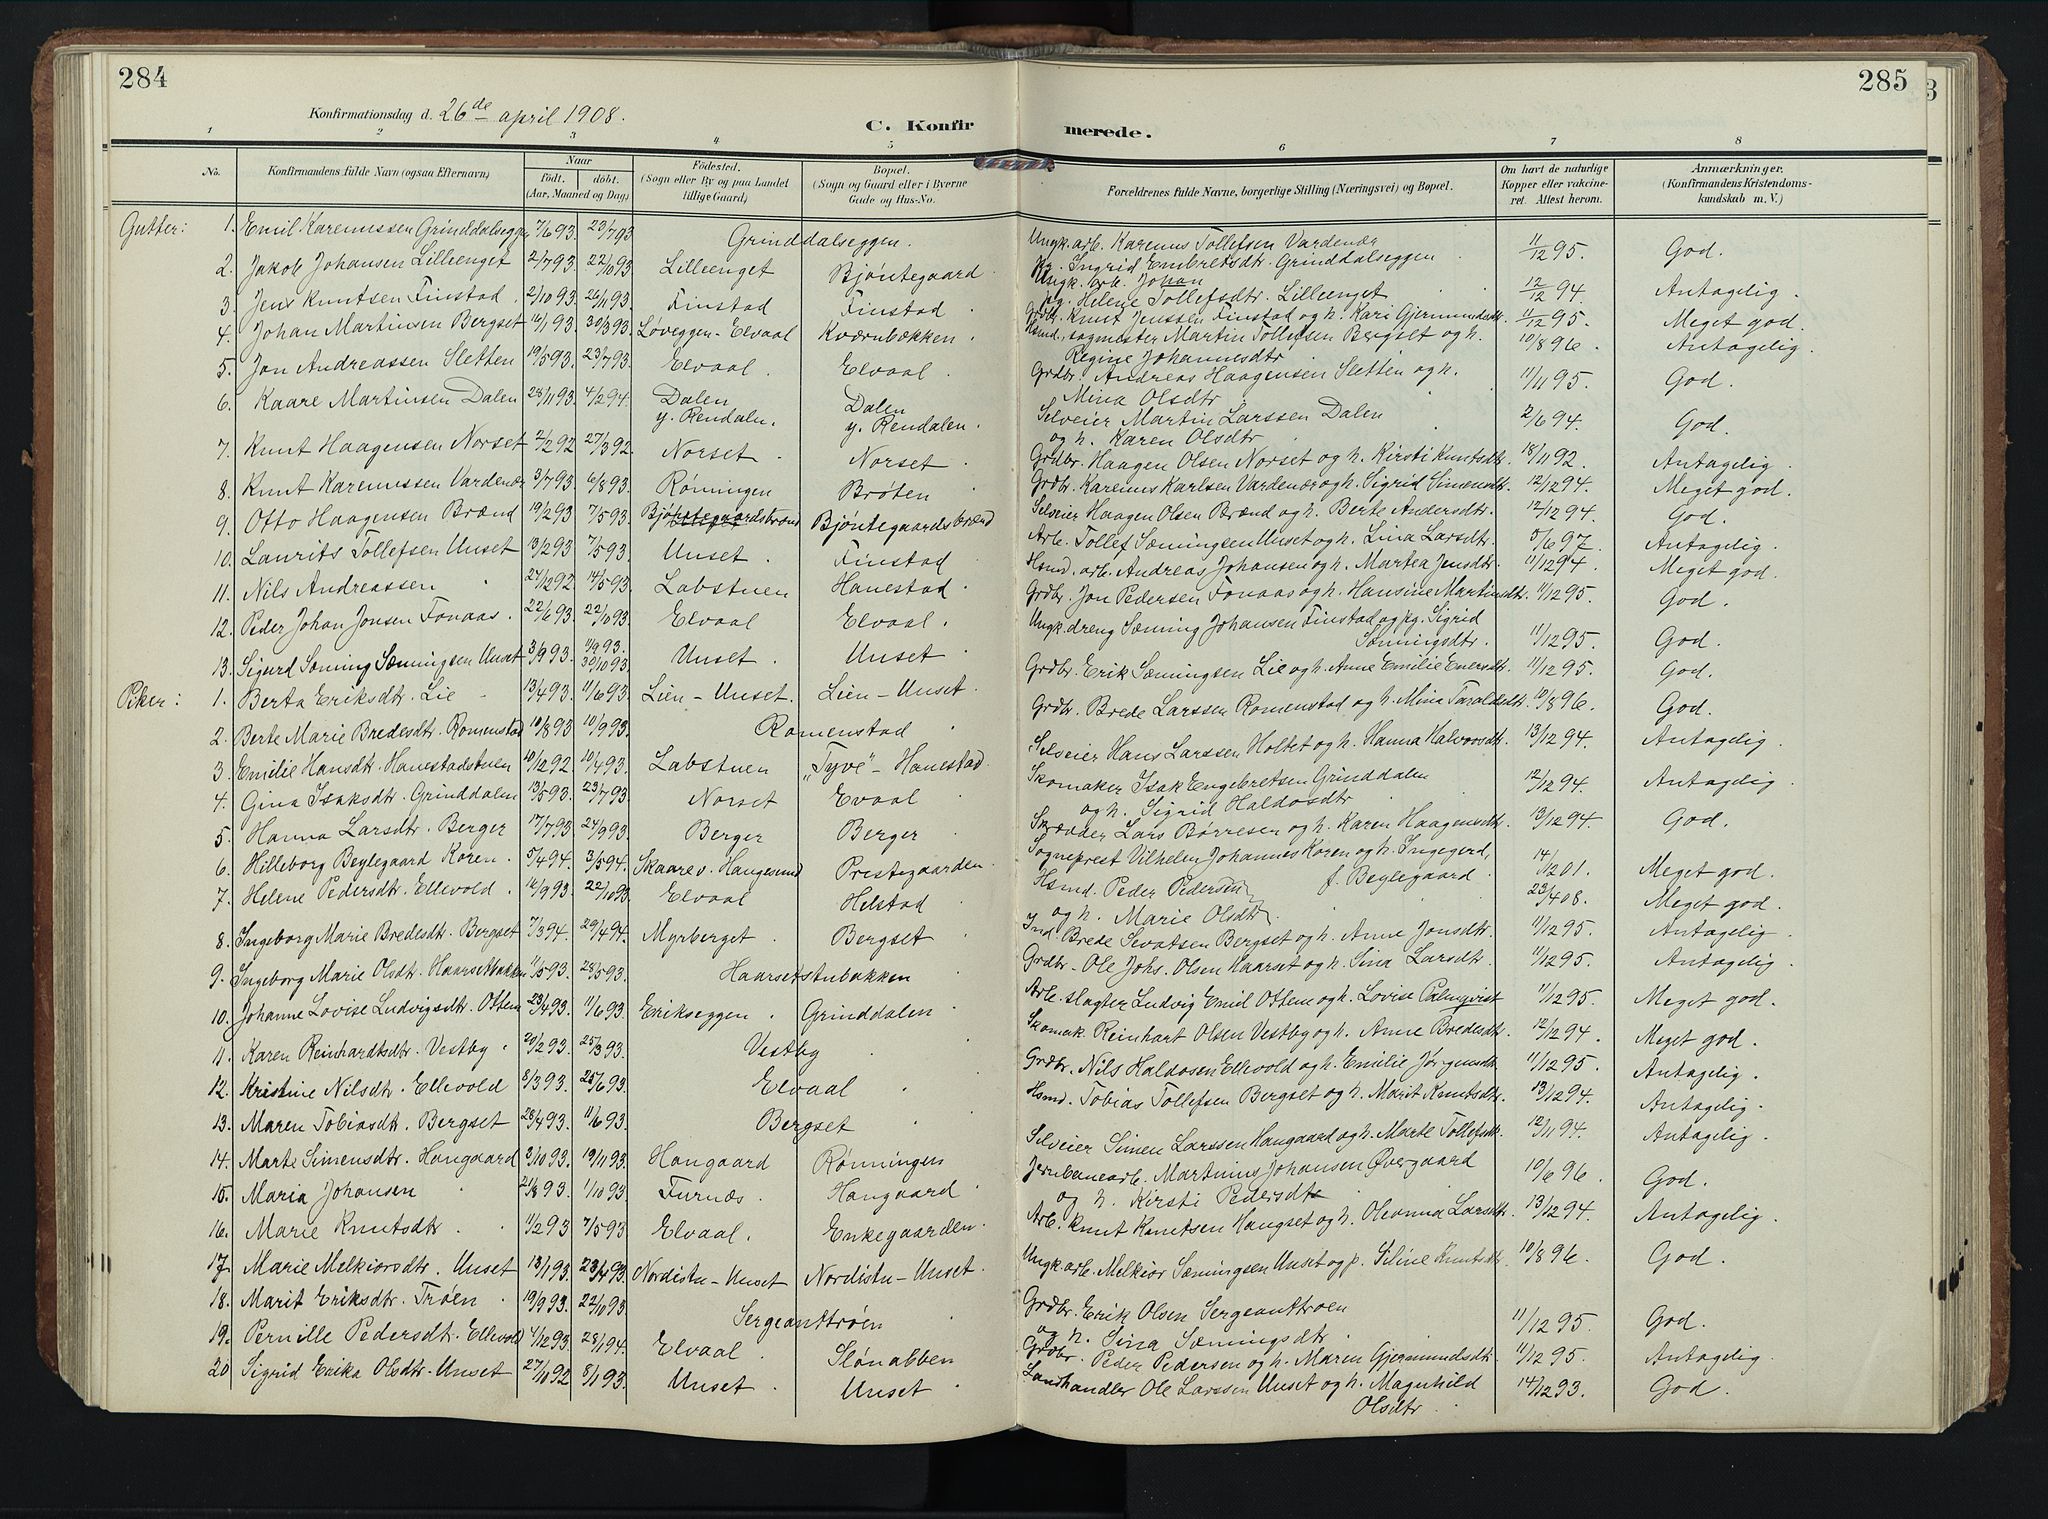 284
285
3
Konfirmationsdag d. 26de april 1908.
C. Konfir
merede.
1 2 3 4 5 6 7 8
No.
Konfirmandens fulde Navn (ogsaa Efternavn)
Naar
födt. döbt.
(Aar, Maaned og Dag)
Födested.
(Sogn eller By og paa Landet
tillige Gaard)
Bopæl.
(Sogn og Gaard eller i Byerne
Gade og Hus-No.
Forældrenes fulde Navne, borgerlige Stilling (Næringsvei) og Bopæl.
Om havt de naturlige
Kopper eller vakcine-
ret. Attest herom.
Anmærkninger.
(Konfirmandens Kristendoms-
kundskab m. V.)
Gutter: 1. Emil Karenussen Grinddalseggen 7/6 93. 23/7 93 Grinddalseggen. Ungk. arb. Karenus Tollefsen Vardenær 11/12 95. God.
Pg. Ingrid Embretsdtr. Grinddalseggen
2. Jakob Johansen Lilleenget 2/7 93. 22/10 93 Lilleenget Bjöntegaard Ungk. arb. Johan 12/12 94. Antagelig.
pg. Helene Tollefsdtr. Lilleenget
3. Jens Knutsen Finstad. 2/10 93. 26/11 93. Finstad Finstad Grdbr. Knut Jenssen Finstad og h. Kari Gjermundsdtr. 11/12 95. Meget god.
4. Johan Martinsen Bergset 14/1 93. 30/3 93. Loveggen - Elvaal Kværnbækken. Hsmd., sagmester Martin Tollefsen Bergset og h. 10/8 96. Antagelig.
Regine Johannesdtr
5. Jon Andreassen Sletten 19/5 93. 23/7 93. Elvaal. Elvaal. Grdbr. Andreas Haagensen Sletten og h. 11/11 95. God.
Mina Olsdtr
6. Kaare Martinsen Dalen 28/11 93. 4/2 94. Dalen y. Rendalen. Dalen y. Rendalen. Selveier Martin Larssen Dalen 2/6 94. God.
og h. Karen Olsdtr
7. Knut Haagensen Norset 2/2 92 27/3 92. Norset. Norset. Grdbr. Haagen Olsen Norset og h. Kirsti Knutsdtr. 18/11 92. Antagelig.
8. Knut Karenussen Vardenær 3/7 93. 6/8 93. Rönningen Bröten Grdbr. Karenus Karlsen Vardenær og h. Sigrid Simensdtr. 12/12 94. Meget god.
9. Otto Haagensen Brænd 19/2 93 7/5 93. Bjöntegaardsbrænd Bjöntegaardsbrænd Selveier Haagen Olsen Brænd og h. Berte Andersdtr. 12/12 94. God.
10. Laurits Tollefsen Unset 13/2 93. 7/5 93. Unset. Finstad Arb. Tollef Sæmingsen Unset og h. Lina Larsdtr. 5/6 97. Antagelig.
11. Nils Andreassen 27/12 92. 14/5 93. Labstuen Hanestad. Hsmd. arb. Andreas Johansen og h. Martea Jensdtr. 11/12 94. Meget god.
12. Peder Johan Jonsen Fonaas. 22/6 93. 22/10 93. Elvaal Elvaal. Grdbr. Jon Pedersen Fonaas og h. Hansine Martinsdtr. 11/12 95. God.
13. Sigurd Sæming Sæmingsen Unset 3/9 93. 11/9 93. 30/10 93. Unset. Unset Ungk. dreng Sæming Johansen Finstad og pg. Sigrid 11/12 95. God.
Sæmingsdtr.
Piker: 1. Berta Eriksdtr. Lie 13/4 93. 11/6 93. Lien - Unset. Lien - Unset. Grdbr. Erik Sæmingsen Lie og h. Anne Emilie Enersdtr. 11/12 95. God.
2. Berte Marie Bredesdtr. Romenstad 10/8 93 10/9 93. Romenstad Grdbr. Brede Larssen Romenstad og h. Mina Taraldsdtr. 10/8 96. God.
3. Emilie Hansdtr. Hanestadstuen 10/12 92 10/4 93. Labstuen „Tyve" - Hanestad. Selveier Hans Larssen Holtet og h. Hanna Halvorsdtr. 13/12 94. Antagelig.
4. Gina Isaksdtr. Grinddalen 13/5 93. 23/7 93. Norset Evaal Skomaker Isak Engebretsen Grinddalen 12/12 94. Antagelig.
og h. Sigrid Haldosdtr
5. Hanna Larsdtr. Berger 17/7 93 24/9 93. Berger Berger Skrædder Lars Börresen og h. Karen Haagensdtr. 13/12 94. God.
6. Hilleborg Beylegaard Koren. 5/4 94. 3/5 94. Skaare v. Haugesund Prestegaarden Sogneprest Vilhelm Johannes Koren og h. Ingegerd, 14/12 01. Meget god.
f. Beylegaard
7. Helene Pedersdtr. Ellevold. 14/9 93. 22/10 93. Elvaal Helstad Hsmd. Peder Pedersen 23/4 08. Meget god.
og h. Marie Olsdtr.
8. Ingeborg Marie Bredesdtr. Bergset 7/3 94. 29/4 94. Myrberget. Bergset Ind. Brede Sevatsen Bergset og h. Anne Jonsdtr. 11/12 95. Antagelig.
9. Ingeborg Marie Olsdtr. Haarsetbakken 11/5 93. 28/5 93. Haarsetstubakken Grdbr. Ole Johs. Olsen Haarset og h. Sina Larsdtr. 11/12 95. Antagelig.
10. Johanne Lovise Ludvigsdtr. Ottem 23/4 93. 11/6 93. Erikseggen. Grinddalen Arb. slagter Ludvig Emil Ottem og h. Lovise Palmqvist 11/12 95. Meget god.
11. Karen Reinhardtsdtr. Vestby. 20/2 93. 25/3 93. Vestby Skomak. Reinhart Olsen Vestby og h. Anne Bredesdtr. 12/12 94. Meget god.
12. Kristine Nilsdtr. Ellevold 8/3 93. 25/6 93. Elvaal Grdbr. Nils Haldosen Ellevold og h. Emilie Jörgensdtr. 11/12 95. Antagelig.
13. Maren Tobiasdtr. Bergset 28/4 93. 11/6 93. Bergset Hsmd. Tobias Tollefsen Bergset og h. Marit Knutsdtr. 13/12 94. Antagelig.
14. Marte Simensdtr. Haugaard 3/10 93. 19/11 93. Haugaard Rönningen Selveier Simen Larssen Haugaard og h. Marte Tollefsdtr. 12/11 94. Antagelig.
15. Maria Johansen 21/8 93. 1/10 93. Furnæs. Haugaard. Jernbanearb. Martinius Johansen Övergaard 10/6 96. God.
og h. Kirsti Pedersdtr
16. Marie Knutsdtr. 11/2 93 7/5 93. Elvaal. Enkegaarden. Arb. Knut Knutsen Haugset og h. Oleanna Larsdtr. 13/12 94. Antagelig.
17. Marie Melkiorsdtr. Unset 13/1 93. 23/4 93. Nordistu - Unset Nordistu - Unset. Ungk. arb. Melkior Sæmingsen Unset og p. Siline Knutsdtr. 10/8 96. God.
18. Marit Eriksdtr. Tröen 19/9 93. 22/10 93. Sergeanttröen Grdbr. Erik Olsen Sergeanttroen 11/12 95. God.
og h. Sina Sæmingsdtr.
19. Pernille Pedersdtr. Ellevold 4/12 93. 28/1 94. Elvaal. Slönabben Grdbr. Peder Pedersen og h. Maren Gjermundsdtr. 11/12 95. Antagelig.
20 Sigrid Erika Olsdtr. Unset 27/10 92 8/1 93. Unset. Unset Landhandler Ole Larssen Unset og h. Magnhild 14/12 93. God.
Olsdtr.